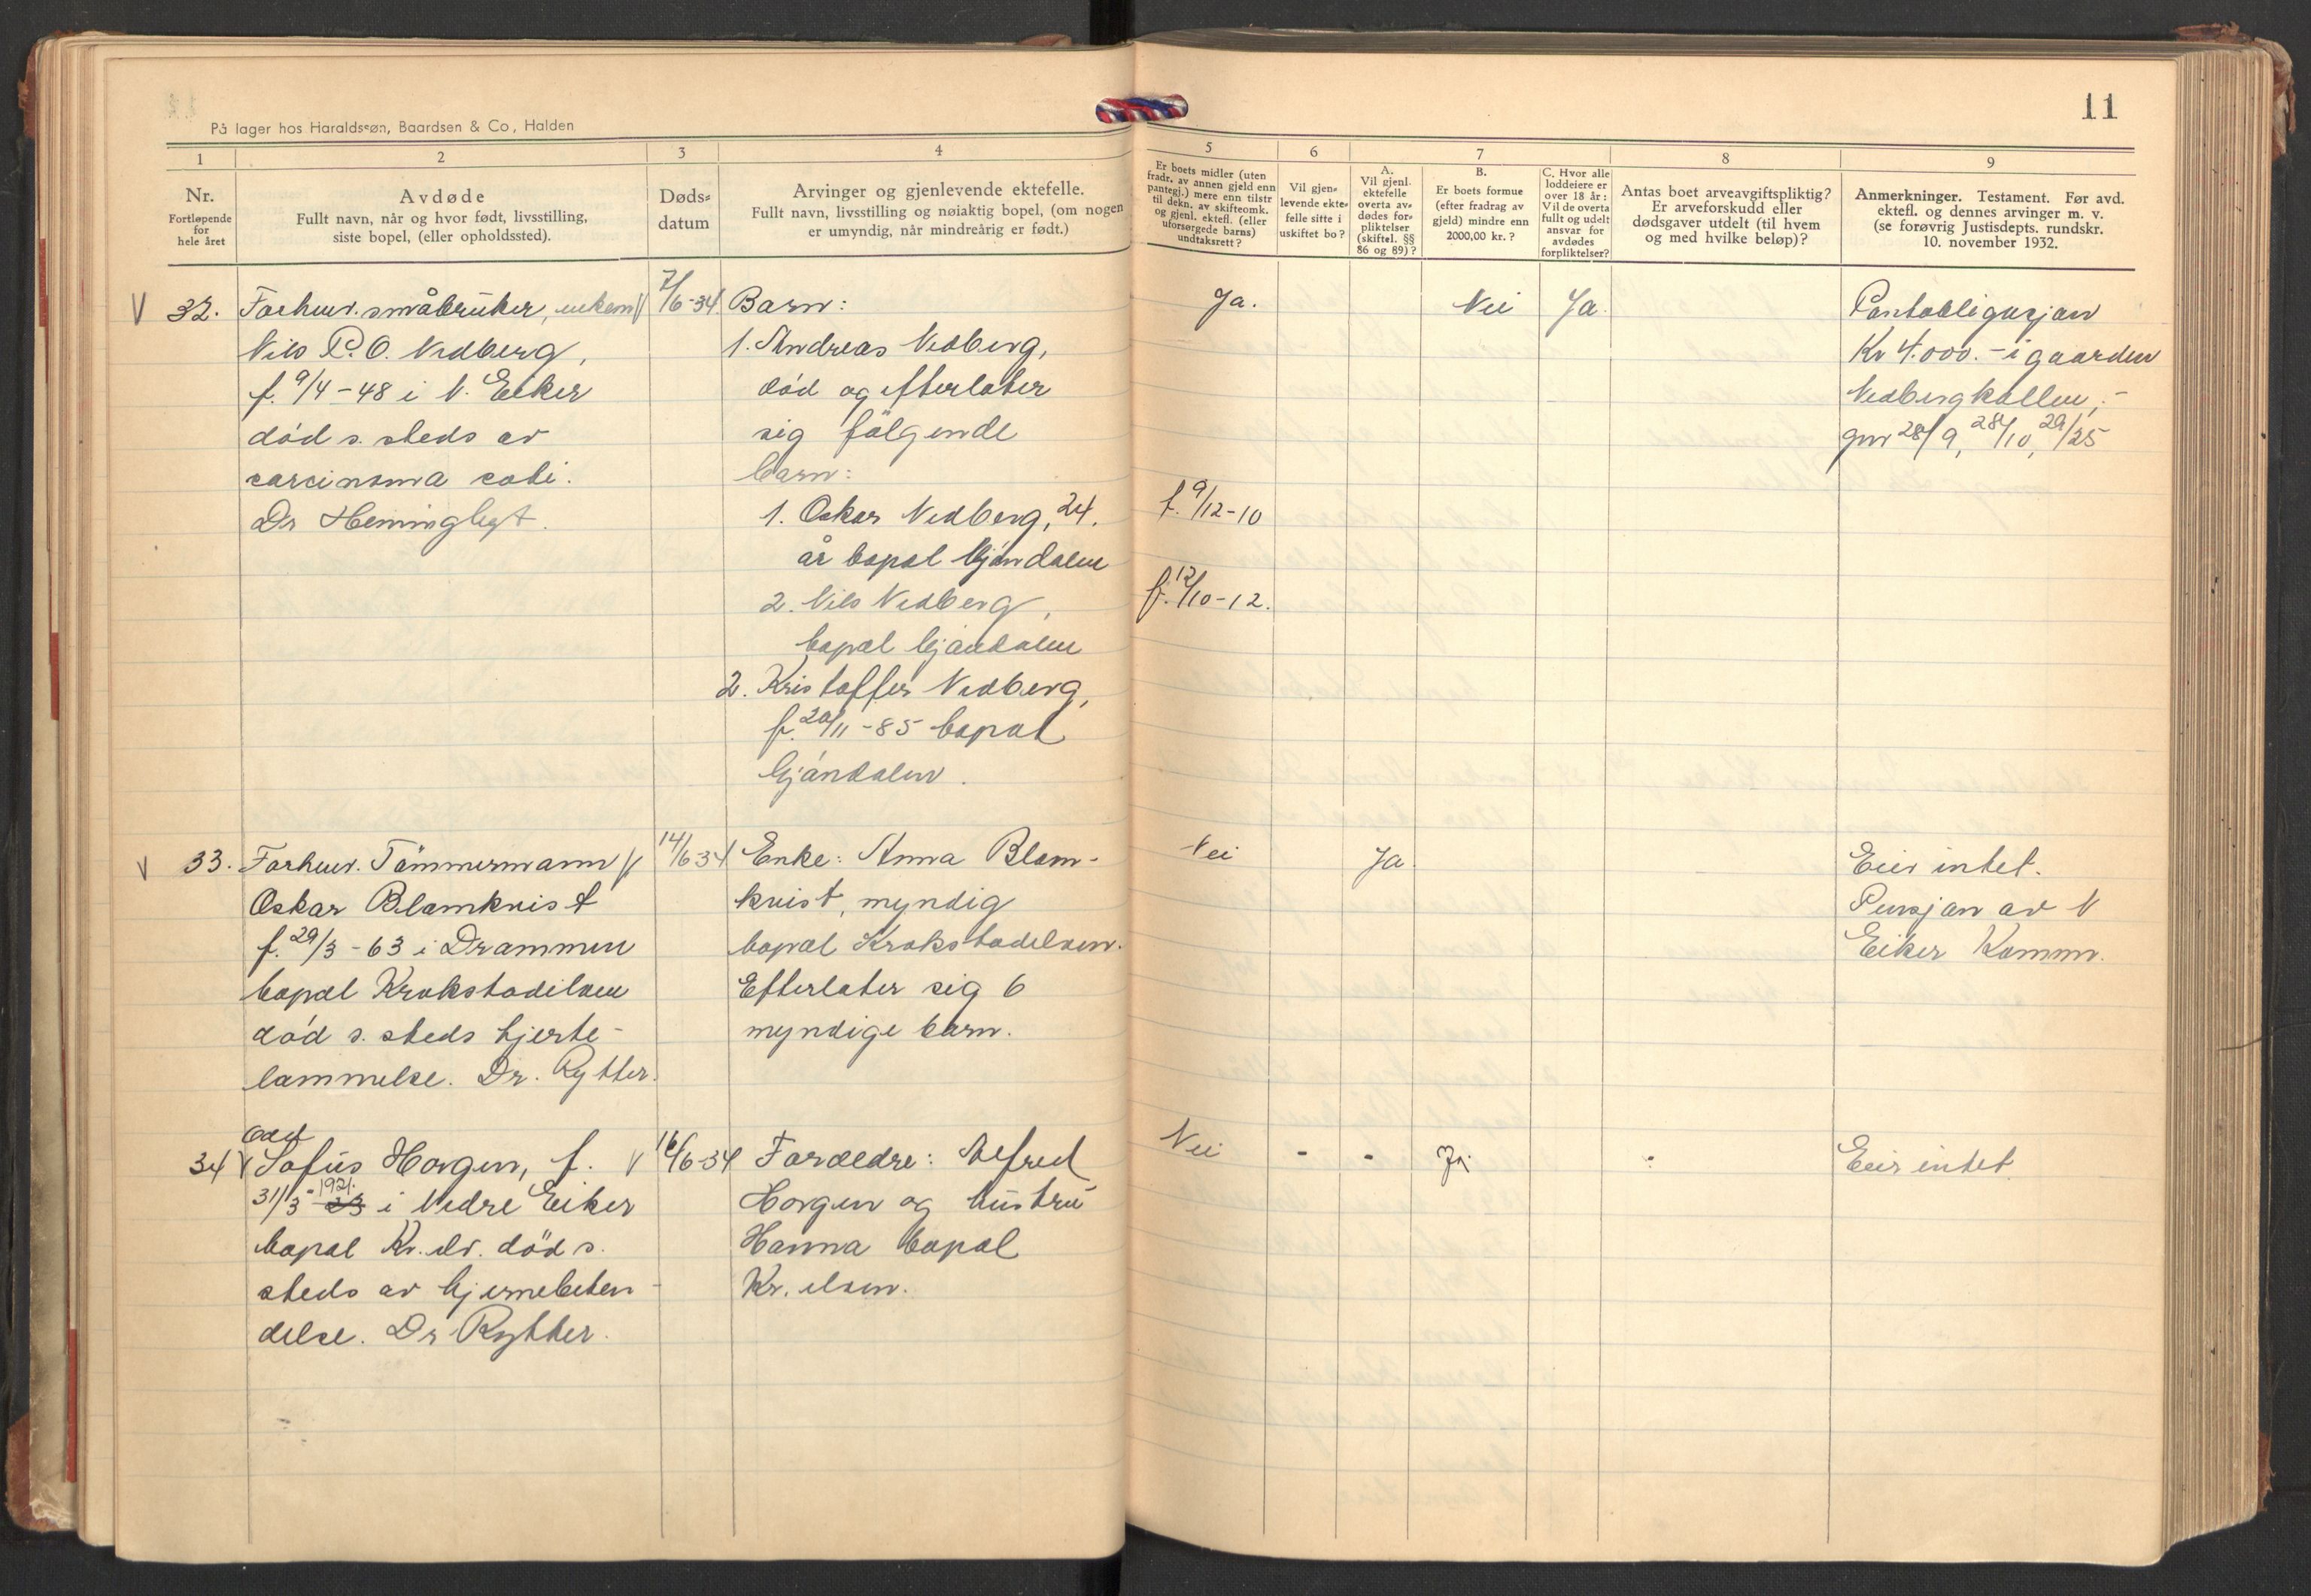 11
På lager hos Haraldssøn, Baardsen & Co, Halden
1 2 3 4
Nr.
Fortløpende
for
hele året
Avdøde
Fullt navn, når og hvor født, livsstilling,
siste bopel, (eller opholdssted).
Døds-
datum
Arvinger og gjenlevende ektefelle.
Fullt navn, livsstilling og nøiaktig bopel, (om nogen
er umyndig, når mindreårig er født.)
5 6 7 8 9
Er boets midler (uten
fradr. av annen gjeld enn
pantegj.) mere enn tilstr
til dekn. av skifteomk.
og gjenl. ektefl. (eller
uforsørgede barns)
undtaksrett?
Vil gjen-
levende ekte-
felle sitte i
uskiftet bo?
A.
Vil gjenl.
ektefelle
overta av-
dødes for-
pliktelser
(skiftel. §§
86 og 89)?
B.
Er boets formue
(efter fradrag av
gjeld) mindre enn
2000,00 kr.?
C. Hvor alle
loddeiere er
over 18 år:
Vil de overta
fullt og udelt
ansvar for
avdødes
forpliktelser?
Antas boet arveavgiftspliktig?
Er arveforskudd eller
dødsgaver utdelt (til hvem
og med hvilke beløp)?
Anmerkninger. Testament. Før avd.
ektefl. og dennes arvinger m. v.
(se forøvrig Justisdepts. rundskr.
10. november 1932.
V 32. Forhenv. småbruker, enkem.
Nils P. O. Nedberg,
f. 9/4-48 i N. Eiker
død s. steds av
carcinoma
Dr
7/6-34
Barn:
1. Andreas Nedberg,
død og efterlater
sig følgende
barn:
1. Oskar Nedberg, 24.
år bopæl Mjøndalen
2. Nils Nedberg,
bopæl Mjøndalen
2. Kristoffer Nedberg,
f. 20/11-85 bopæl
Mjøndalen.
Ja. Nei Ja.
f. 9/12-10
f. 12/10-12.
Pantobligasjon
Kr 4.000.- i gaarden
Nedbergkollen,
gnr 28/9, 28/10, 29/25
V 33. Forhenv. Tømmermann
Oskar Blomkvist
f. 29/3-63 i Drammen
bopæl Krokstadelven
død s. steds hjerte-
lammelse. Dr. Rytter.
14/6-34
Enke: Anna Blom-
kvist, myndig
bopæl Krokstadelven.
Efterlater sig 6
myndige barn.
Nei Ja.
Eier intet.
Pensjon av N
Eiker Komm.
Odd
34 V Sofus Horgen, f. V
31/3-23 1921. i Nedre Eiker
bopæl Kr. elv. død s.
steds av hjernebeten-
delse. Dr Rytter.
16/6-34
Foreldre: Alfred
Horgen og hustru
Hanna bopæl
Kr. elven.
Nei - - Ja.
Eier intet